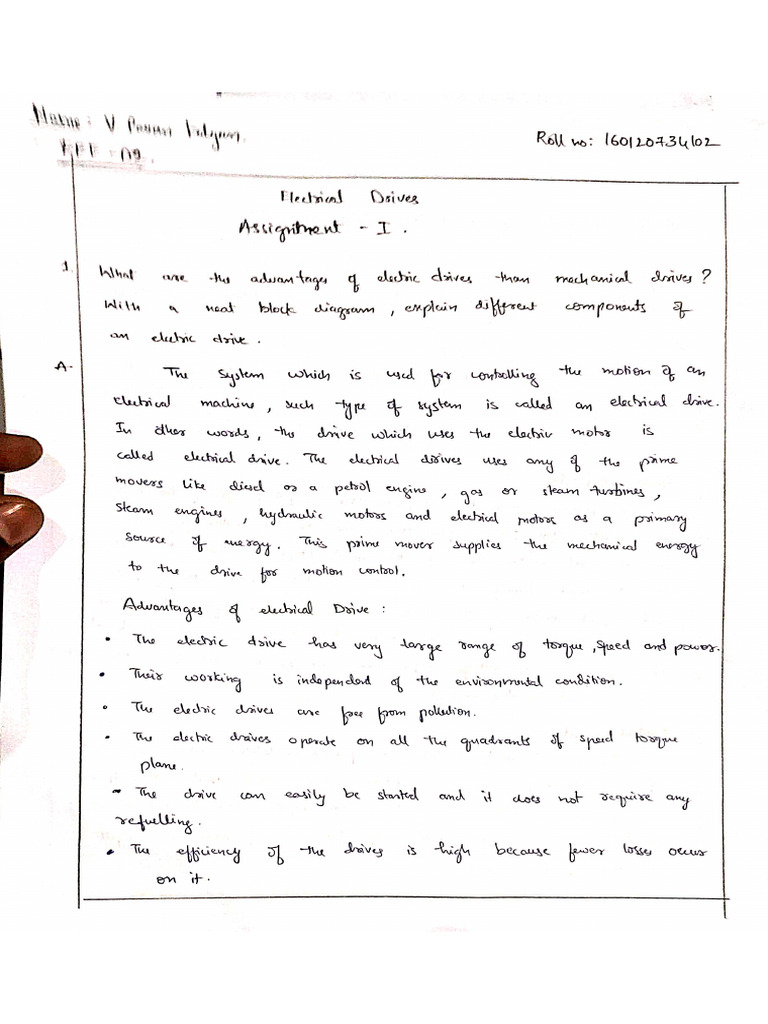 Name: V Pavan Kalyan
Roll no: 160120734102
EEE - A2.
Electrical Drives
Assignment - I.
1. What are the advantages of electric drives than mechanical drives?
With a neat block diagram, explain different components of
an electric drive.
A. The system which is used for controlling the motion of an
electrical machine, such type of system is called an electrical drive.
In other words, the drive which uses the electric motor is
called electrical drive. The electrical drives uses any of the prime
movers like diesel or a petrol engine, gas or steam turbines,
steam engines, hydraulic motors and electrical motors as a primary
source of energy. This prime mover supplies the mechanical energy
to the drive for motion control.
Advantages of electrical Drive:
• The electric drive has very large range of torque, speed and power.
• Their working is independent of the environmental condition.
• The electric drives are free from pollution.
• The electric drives operate on all the quadrants of speed torque
plane.
• The drive can easily be started and it does not require any
refuelling.
• The efficiency of the drives is high because fewer losses occurs
on it.